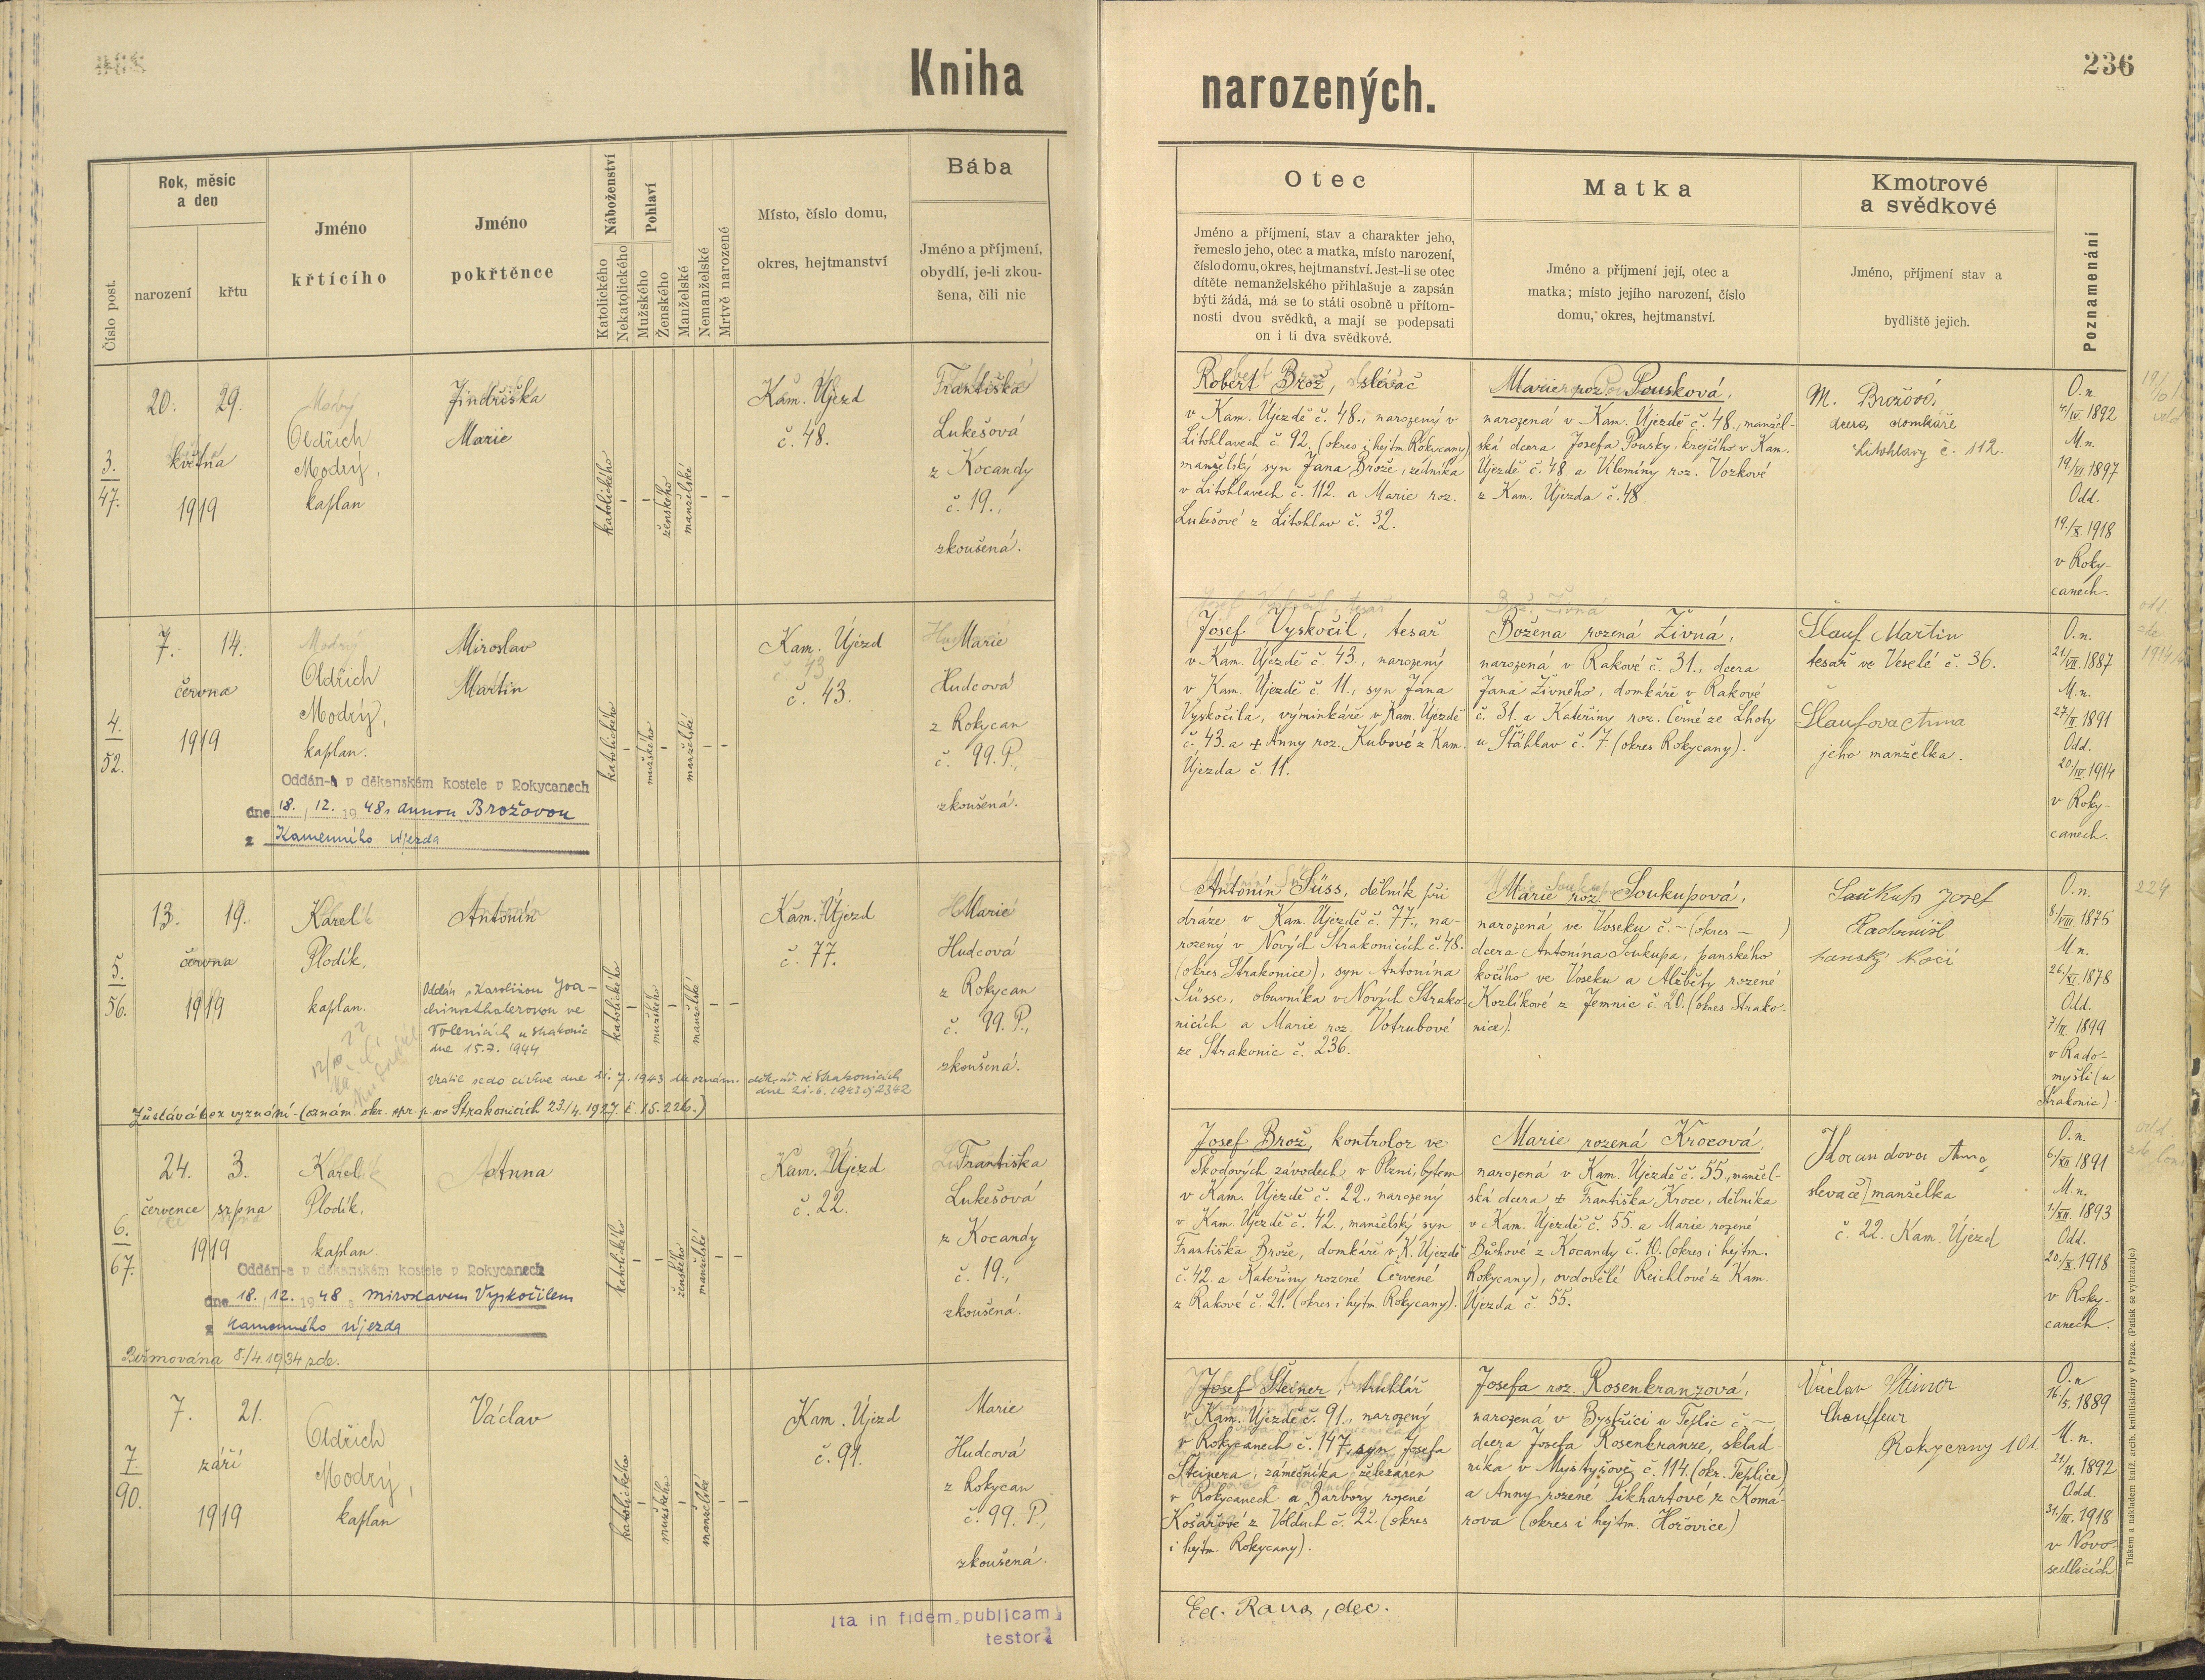 Kniha
narozených.
236
Číslo post.
Rok, měsíc
a den
narození
křtu
Jméno
křtícího
Jméno
pokřtěnce
Náboženství
Katolického
Nekatolického
Pohlaví
Mužského
Ženského
Manželské
Nemanželské
Mrtvě narozené
Místo, číslo domu,
okres, hejtmanství
Bába
Jméno a příjmení,
obydlí, je-li zkou-
šena, čili nic
Otec
Jméno a příjmení, stav a charakter jeho,
řemeslo jeho, otec a matka, místo narození,
číslo domu, okres, hejtmanství. Jest-li se otec
dítěte nemanželského přihlašuje a zapsán
býti žádá, má se to státi osobně u přítom-
nosti dvou svědků, a mají se podepsati
on i ti dva svědkové.
Matka
Jméno a příjmení její, otec a
matka; místo jejího narození, číslo
domu, okres, hejtmanství.
Kmotrové
a svědkové
Jméno, příjmení stav a
bydliště jejich.
Poznamenání
3.
47.
20. 29.
května
1919
Modrý
Oldřich
Modrý,
kaplan
Jindřiška
Marie
katolického
ženského
manželské
Kam. Újezd
č. 48.
Františka
Lukešová
z Kocandy
č. 19.,
zkoušená.
Robert Brož, slévač
v Kam. Újezdě č. 48., narozený v
Litohlavech č. 92. (okres i hejtm. Rokycany)
manželský syn Jana Brože, zedníka
v Litohlavech č. 112. a Marie roz.
Lukešové z Litohlav č. 32.
Marie roz. Pousková,
narozená v Kam. Újezdě č. 48., manžel-
ská dcera Josefa Pousky, krejčího v Kam.
Újezdě č. 48. a Klemíny roz. Vozkové
z Kam. Újezda č. 48.
M. Brožová,
dcera domkáře
Litohlavy č. 112.
O.n.
4./IV. 1892
M.n.
19/VI. 1897
Odd.
19./X. 1918
v Roky-
canech.
4.
52.
7. 14.
června
1919
Modrý
Oldřich
Modrý,
kaplan.
Miroslav
Martin
katolického
mužského
manželské
Kam. Újezd
č. 43.
Marie
Hudcová
z Rokycan
č. 99. P.,
zkoušená.
Oddán-a v děkanském kostele v Rokycanech
dne 18. 12. 1948 s Annou Brožovou
z Kamenného Újezda
Josef Vyskočil, tesař
v Kam. Újezdě č. 43., narozený
v Kam. Újezdě č. 11., syn Jana
Vyskočila, výminkáře v Kam. Újezdě
č. 43. a ‡ Anny roz. Kubové z Kam.
Újezda č. 11.
Božena rozená Živná,
narozená v Rakové č. 31., dcera
Jana Živného, domkáře v Rakové
č. 31. a Kateřiny roz. Černé ze Lhoty
u Šťáhlav č. 7. (okres Rokycany).
Šlauf Martin
tesař ve Veselé č. 36.
Šlaufova Anna
jeho manželka.
O.n.
21/VII. 1887
M.n.
27/II. 1891
Odd.
20/IV. 1914
v Roky-
canech.
5.
56.
13. 19.
června
1919
Karel
Plodík,
kaplan.
Antonín
Oddán s Karolinou Joa-
chimsthalerovou ve
Volenicích u Strakonic
dne 15.7. 1944
Vrátil se do církve dne 21. 7. 1943 dle oznám. děk. úř. ve Strakonicích
dne 21.6.1943 čj 2342
Zůstává bez vyznání - (oznám. okr. spr. p. ve Strakonicích 23/4. 1927. č. 15.226.)
katolického
mužského
manželské
Kam. Újezd
č. 77.
Marie
Hudcová
z Rokycan
č. 99. P.,
zkoušená.
Antonín Süss, dělník při
dráze v Kam. Újezdě č. 77., na-
rozený v Nových Strakonicích č. 48.
(okres Strakonice), syn Antonína
Süsse, obuvníka v Nových Strako-
nicích a Marie roz. Votrubové
ze Strakonic č. 236.
Marie roz. Soukupová,
narozená ve Voseku č. – (okres – )
dcera Antonína Soukupa, panského
kočího ve Voseku a Alžběty rozené
Kozlíkové z Jemnic č. 20. (okres Strako-
nice).
Soukup Josef
Radomišl
panský kočí
O.n.
8/VIII. 1875
M.n.
26/XI. 1878
Odd.
7/II. 1899
v Rado-
myšli (u
Strakonic).
224
6.
67.
24. 3.
července srpna
1919
Karel
Plodík,
kaplan.
Anna
katolického
ženského
manželské
Kam. Újezd
č. 22.
Františka
Lukešová
z Kocandy
č. 19.,
zkoušená.
Oddán-a v děkanském kostele v Rokycanech
dne 18. 12. 1948 s Miroslavem Vyskočilem
z Kamenného Újezda
Biřmována 8./4. 1934 zde.
Josef Brož, kontrolor ve
Škodových závodech v Plzni, bytem
v Kam. Újezdě č. 22., narozený
v Kam. Újezdě č. 42., manželský syn
Františka Brože, domkáře v K. Újezdě
č. 42. a Kateřiny rozené Červené
z Rakové č. 21. (okres i hejtm. Rokycany).
Marie rozená Krocová,
narozená v Kam. Újezdě č. 55., manžel-
ská dcera ‡ Františka Kroce, dělníka
v Kam. Újezdě č. 55. a Marie rozené
Bůhové z Kocandy č. 10. (okres i hejtm.
Rokycany), ovdovělé Reichlové z Kam.
Újezda č. 55.
Horandova Anna
slevače manželka
č. 22. Kam. Újezd
O.n.
6/XII. 1891
M.n.
1/XII. 1893
Odd.
20/X. 1918
v Roky-
canech.
7.
90.
7. 21.
září
1919
Oldřich
Modrý,
kaplan
Václav
katolického
mužského
manželské
Kam. Újezd
č. 91.
Marie
Hudcová
z Rokycan
č. 99. P.,
zkoušená.
Josef Steiner, truhlář
v Kam. Újezdě č. 91., narozený
v Rokycanech č. 147, syn Josefa
Steinera, zámečníka železáren
v Rokycanech a Barbory rozené
Košařové z Volduch č. 22. (okres
i hejtm. Rokycany).
Josefa roz. Rosenkranzová,
narozená v Bystřici u Teplic č. –
dcera Josefa Rosenkranze, sklad-
níka v Mystyšově č. 114. (okr. Teplice)
a Anny rozené Pikhartové z Komá-
rova (okres i hejtm. Hořovice)
Václav Steiner
Chauffeur
Rokycany 101.
O.n
16./5. 1889
M.n.
21/II. 1892
Odd.
31/III. 1918
v Novo-
sedlicích
Ita in fidem publicam
testor
Ed. Rana, dec.
Tiskem a nákladem kníž. arcib. knihtiskárny v Praze. (Patisk se vyhrazuje.)